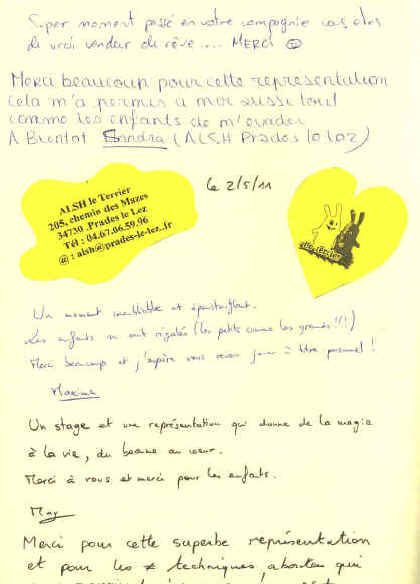 Super moment passé en votre compagnie vous êtes
de vrai vendeur de rêve.... MERCI
Merci beaucoup pour cette représentation
cela m'a permis a moi aussi tout
comme les enfants de m'évader
A Bientot Sandra (ALSH Prades le lez)
ALSH le Terrier
205, chemin des Mazes
34730 .Prades le Lez
Tél : 04.67.06.59.96
@ : alsh@prades-le-lez..fr
Le 2/5/11
Un moment inoubliable et époustouflant.
Les enfants se sont régalés (les petits comme les grands !!!)
Merci beaucoup et j'espère vous revoir jouer à titre personnel !
Maxime
Un stage et une représentation qui donne de la magie
à la vie, du baume au coeur.
Merci à vous et merci pour les enfants.
May
Merci pour cette superbe représentation
et pour les ≠ techniques abordées qui